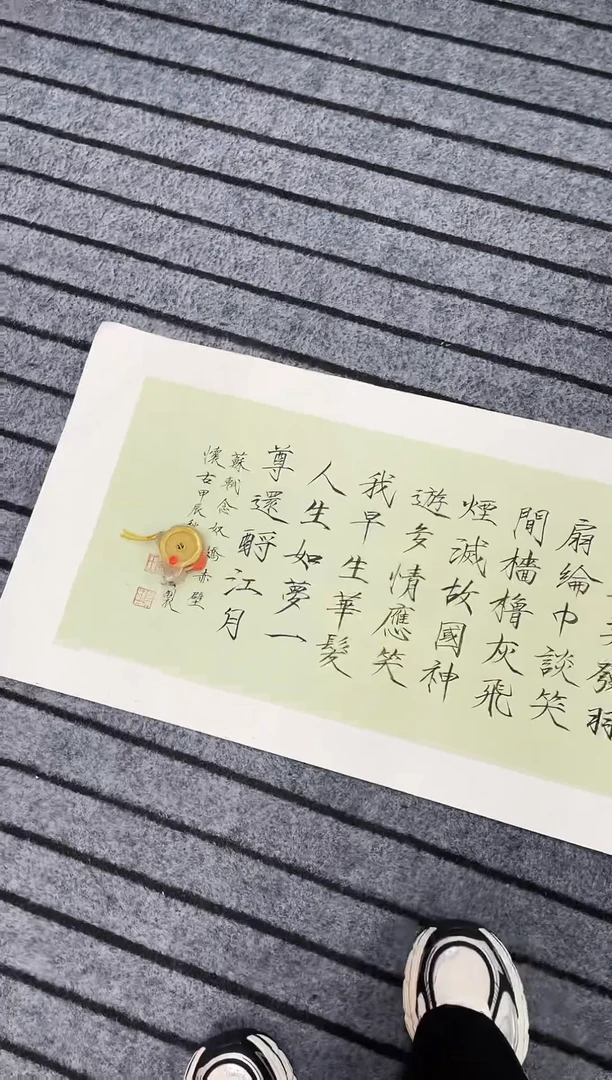 發
扇綸巾談笑
間檣櫓灰飛
煙滅故國神
遊多情應笑
我早生華髮
人生如夢一
尊還酹江月
蘇軾念奴嬌赤壁
懷古甲辰秋